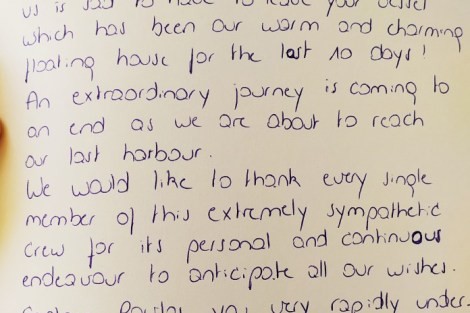 us is sad to have to leave your vessel
which has been our warm and charming
floating house for the last 10 days!
An extraordinary journey is coming to
an end as we are about to reach
our last harbour.
We would like to thank every single
member of this extremely sympathetic
crew for its personal and continuous
endeavour to anticipate all our wishes.
you very rapidly under.